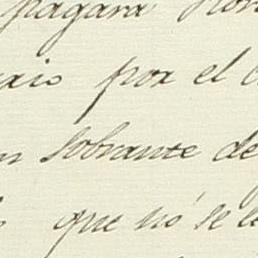 pagara
por el
sobrante de
que nó se le